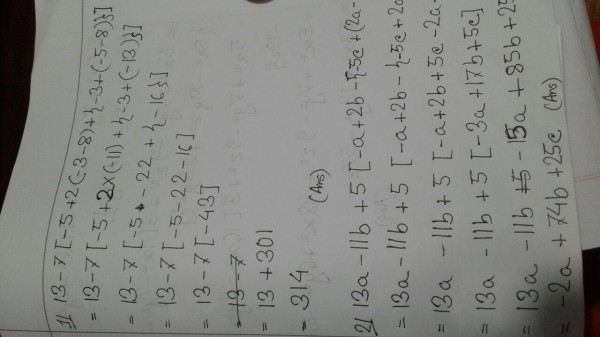 1) 13-7[-5+2(-3-8)+{-3+(-5-8)}]
= 13-7[-5+2×(-11)+{-3+(-13)}]
= 13-7[-5-22+{-16}]
= 13-7[-5-22-16]
= 13-7[-43]
= 13-7
= 13+301
= 314 (Ans)
2) 13a-11b+5[-a+2b-{-5c+(2a-
= 13a-11b+5[-a+2b-{-5c+2a
= 13a-11b+5[-a+2b+5c-2a-
= 13a-11b+5[-3a+17b+5c]
= 13a-11b-15a+85b+25
= -2a+74b+25c (Ans)